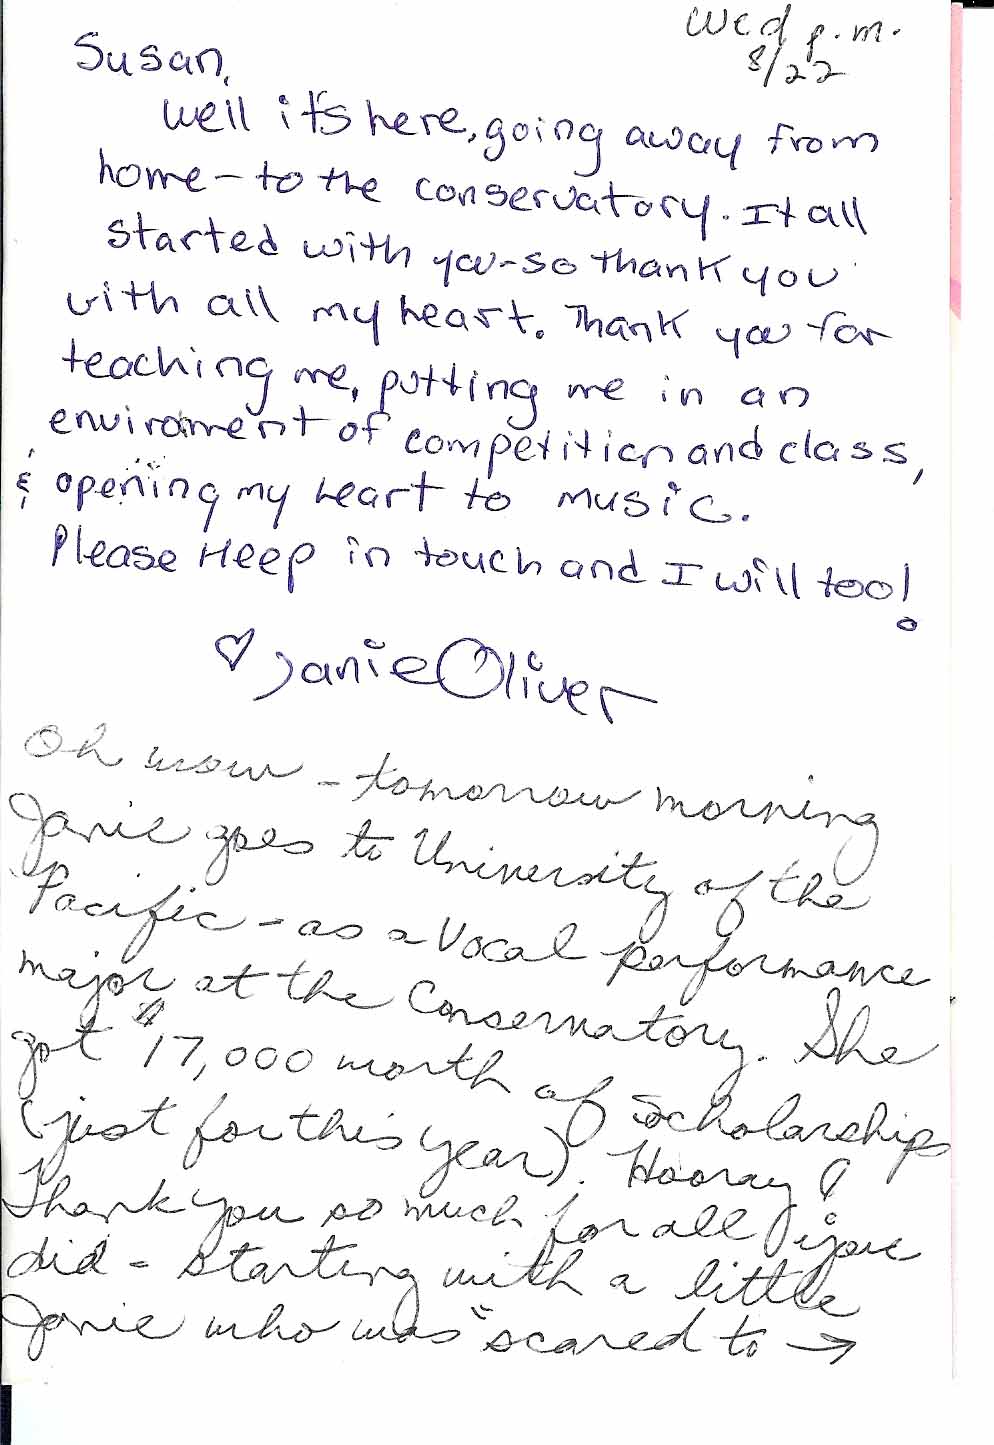 Wed p.m.
8/22
Susan,
Well it's here, going away from
home - to the conservatory. It all
started with you - so thank you
with all my heart. Thank you for
teaching me, putting me in an
envirament of competition and class,
& opening my heart to music.
Please Keep in touch and I will too!
♡ Janie Oliver
Oh wow - tomorrow morning
Janie goes to University of the
Pacific - as a Vocal performance
major at the Conservatory. She
got $17,000 worth of scholarships
(just for this year). Hooray!
Thank you so much for all you
did - starting with a little
Janie who was "scared to →